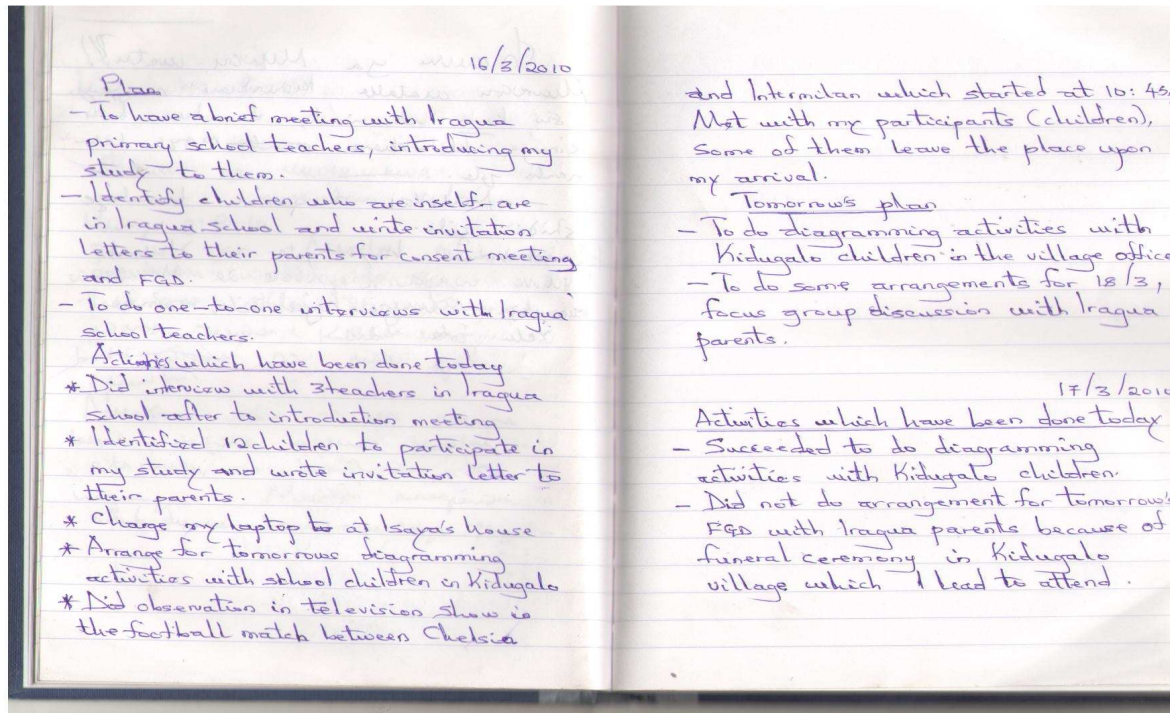 16/3/2010
Plan
- To have a brief meeting with Iragua
primary school teachers, introducing my
study to them.
- Identify children who are inself-are
in Iragua school and write invitation
letters to their parents for consent meeting
and FGD.
- To do one-to-one interviews with Iragua
school teachers.
Activities which have been done today
* Did interview with 3 teachers in Iragua
school after to introduction meeting
* Identified 12 children to participate in
my study and wrote invitation letter to
their parents.
* Charge my laptop to at Isaya's house
* Arrange for tomorrows diagramming
activities with school children in Kidugalo
* Did observation in television show is
the football match between Chelsia
and Intermilan which started at 10:45.
Met with my participants (children),
some of them leave the place upon
my arrival.
Tomorrow's plan
- To do diagramming activities with
Kidugalo children in the village office
- To do some arrangements for 18/3,
focus group discussion with Iragua
parents.
17/3/2010
Activities which have been done today
- Succeeded to do diagramming
activities with Kidugalo children.
- Did not do arrangement for tomorrow's
FGD with Iragua parents because of
funeral ceremony in Kidugalo
village which I lead to attend.